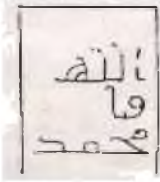 الله
و
محمد